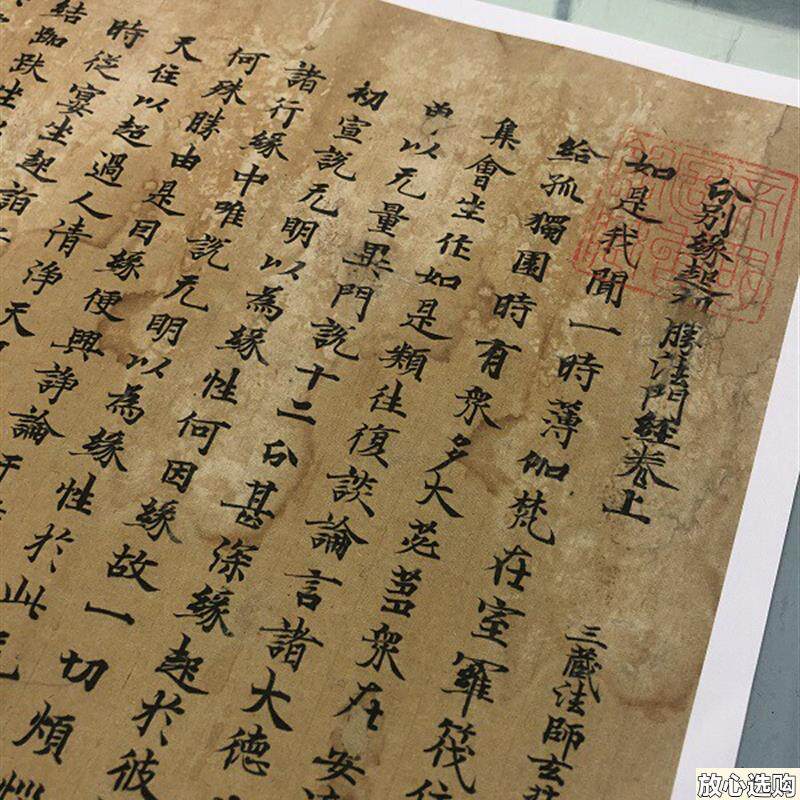 分別緣起初勝法門經卷上
三藏法師玄
如是我聞一時薄伽梵在室羅筏住
給孤獨園時有眾多大苾芻眾在安
集會坐作如是類往復談論言諸大德
以无量異門說十二分甚深緣起於彼
初宣說无明以為緣性何因緣故一切煩惱
諸行緣中唯說无明以為緣性於此
何殊勝由是因緣便興諍論
天住以超過人清淨天
時從宴坐起詣
結跏趺坐
放心选购